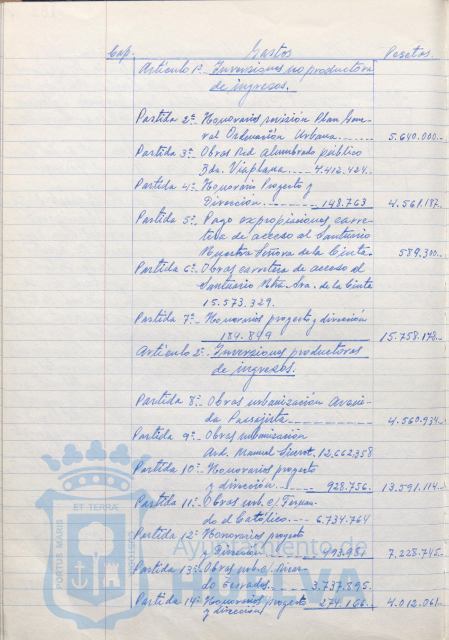 Cap. Gastos Pesetas
Artículo 1º Inversiones no productora
de ingresos.
Partida 2ª Honorarios revisión Plan Gene-
ral Ordenación Urbana 5.640.000.-
Partida 3ª Obras Red alumbrado público
Bda. Viaplana 4.412.424.-
Partida 4ª Honorario Proyecto y
Dirección 148.763 4.561.187.
Partida 5ª Pago expropiaciones carre-
tera de acceso al Santuario
Nuestra Señora de la Cinta. 589.300.-
Partida 6ª Obras carretera de acceso al
Santuario Ntra. Sra. de la Cinta
15.573.329.
Partida 7ª Honorarios proyecto y dirección
184.849 15.758.178.-
Artículo 2º Inversiones productoras
de ingresos.
Partida 8ª Obras urbanización Aveni-
da Paisajista 4.560.934.-
Partida 9ª Obras urbanización
Avd. Manuel Siurot. 12.662.358
Partida 10ª Honorarios proyecto
y dirección 928.756. 13.591.114.-
Partida 11ª Obras urb. c/ Fernan-
do el Católico 6.734.764
Partida 12ª Honorarios proyecto
y Dirección 493.981 7.228.745.-
Partida 13ª Obras urb. c/
do 3.737.895.
Partida 14ª Honorarios proyecto 274.166. 4.012.061.-
y dirección
PORTUS MARIS
ET TERRAE
CUSTODIA
Ayuntamiento de
HUELVA